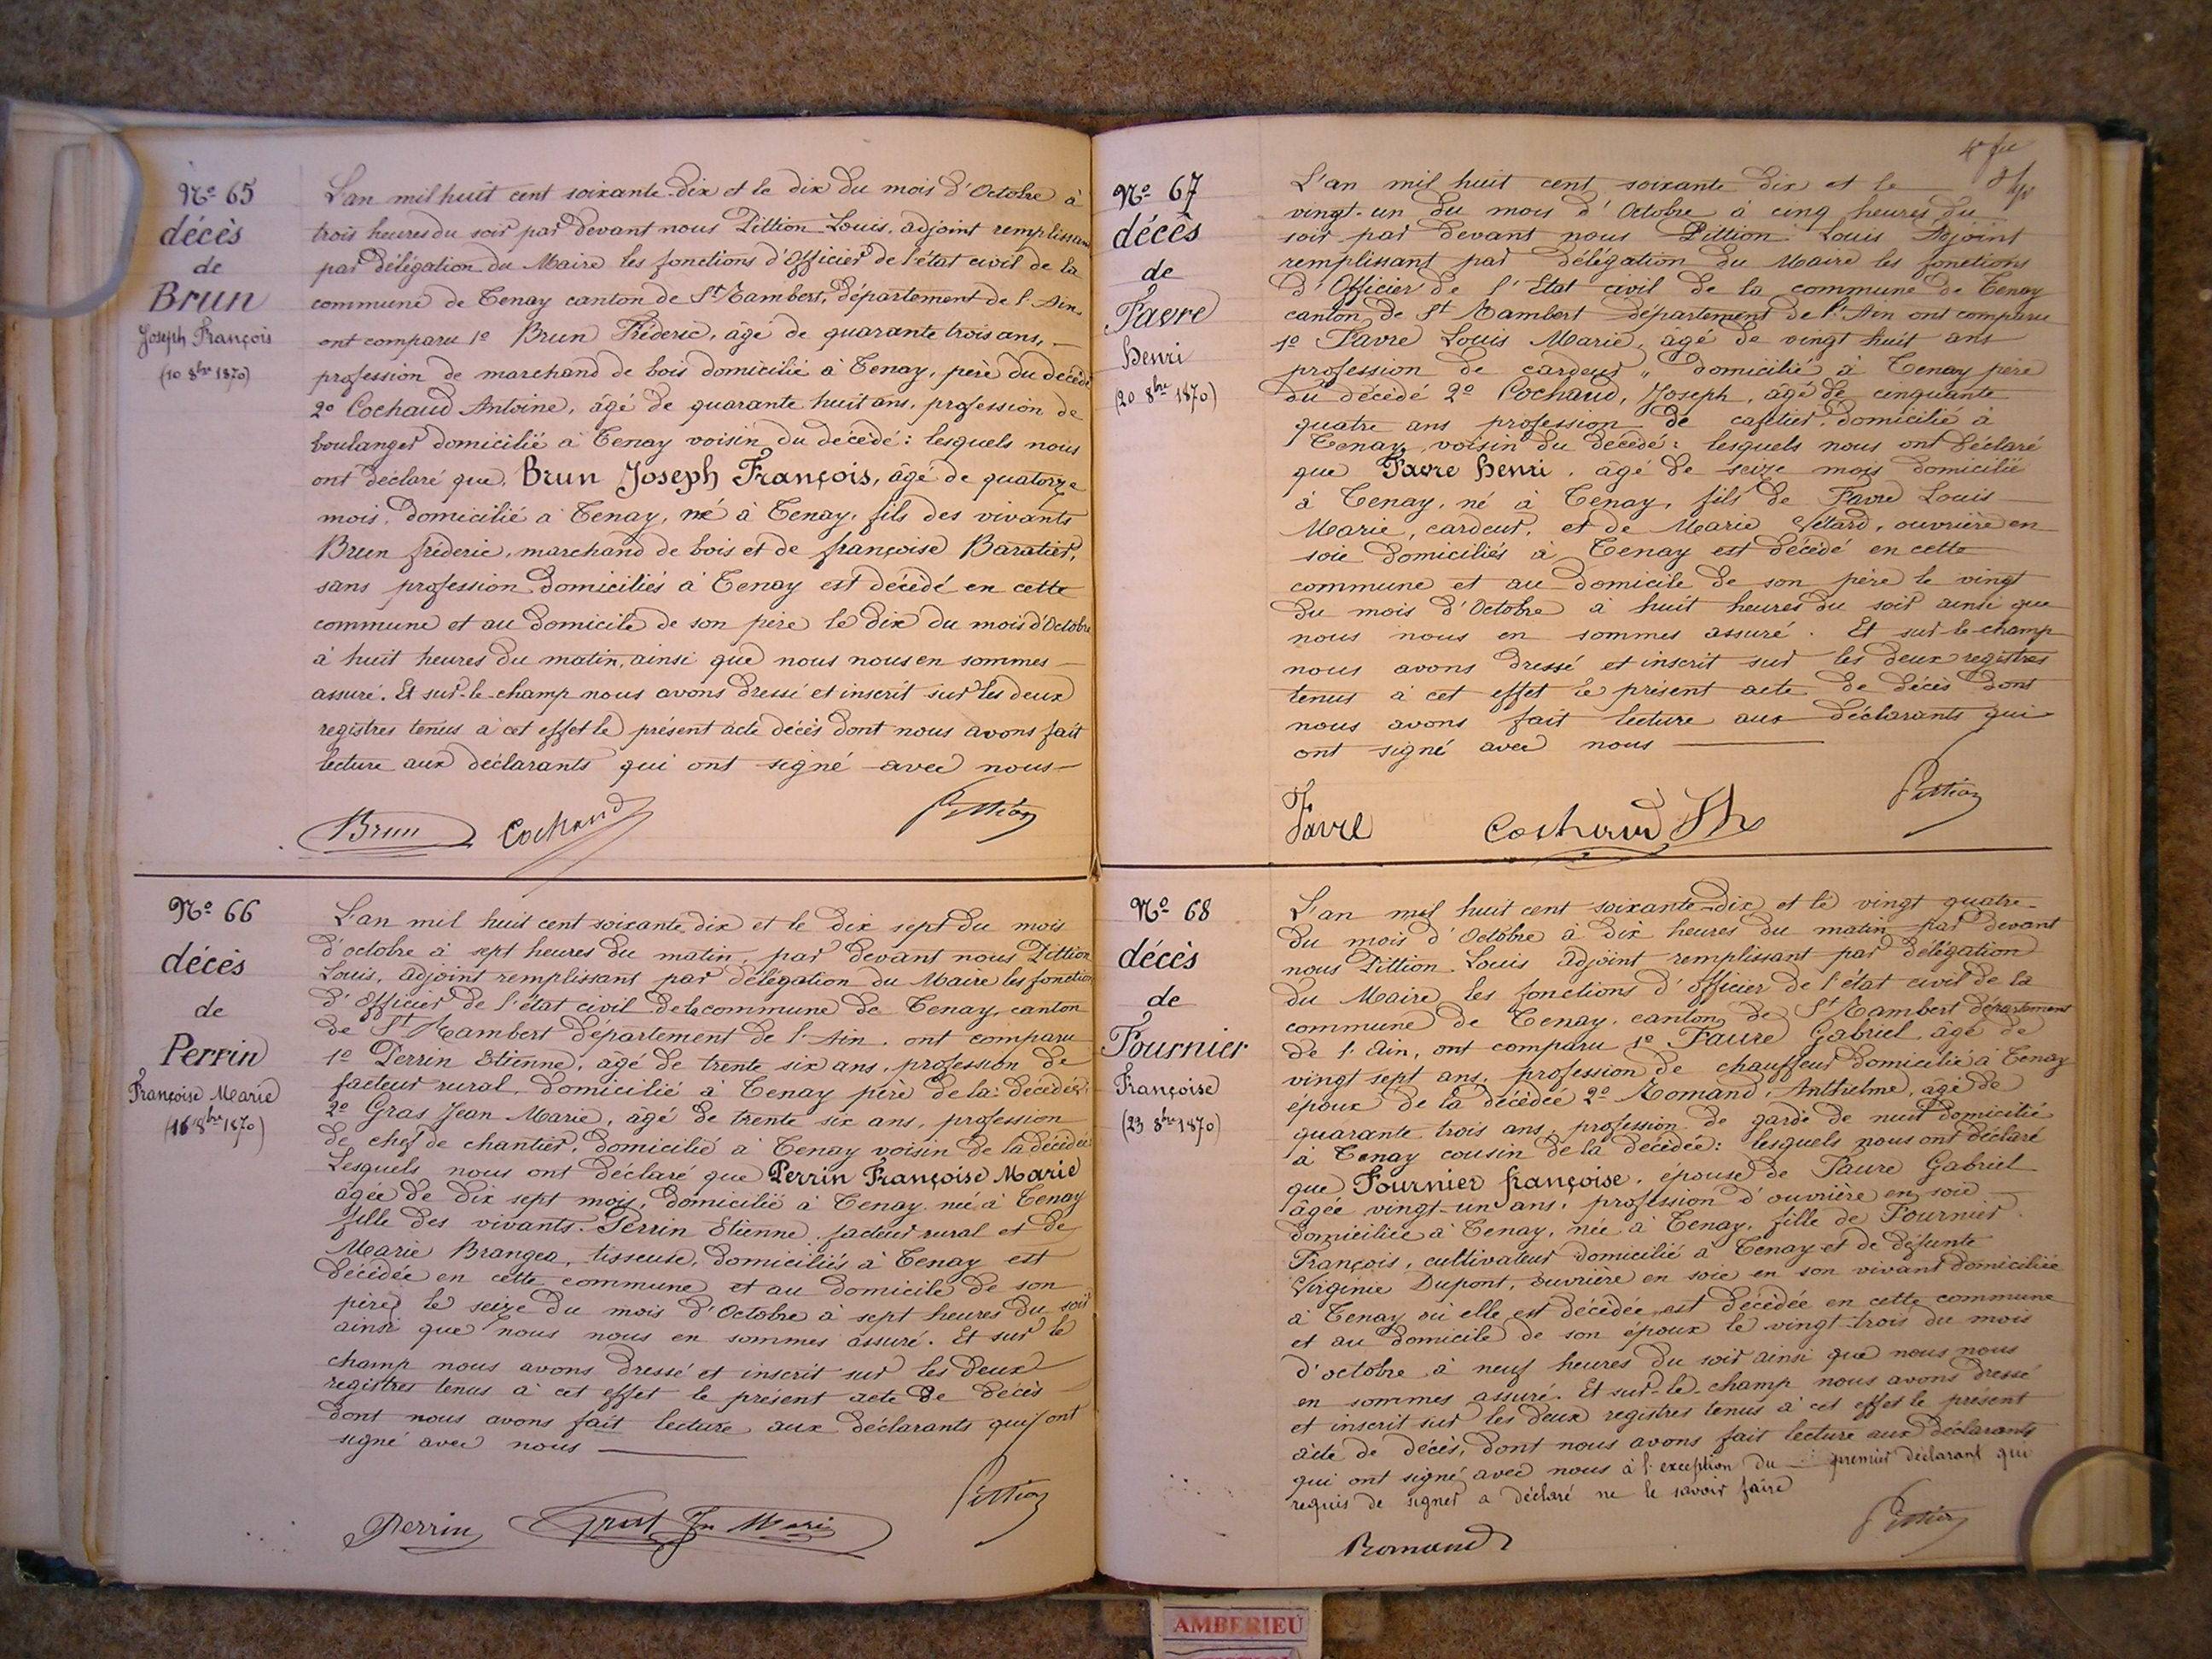 Nº 65
décès
de
Brun
Joseph François
(10 8bre 1870)
L'an mil huit cent soixante-dix et le dix du mois d'Octobre à
trois heures du soir par devant nous Pittion Louis, adjoint remplissant
par délégation du Maire les fonctions d'Officier de l'état civil de la
commune de Tenay canton de St Rambert, département de l'Ain,
ont comparu 1º Brun Fréderic, âgé de quarante trois ans,
profession de marchand de bois domicilié à Tenay, père du décédé
2º Cochaud Antoine, âgé de quarante huit ans, profession de
boulanger domicilié à Tenay voisin du décédé: lesquels nous
ont déclaré que, Brun Joseph François, âgé de quatorze
mois, domicilié à Tenay, né à Tenay, fils des vivants
Brun fréderic, marchand de bois et de françoise Baratier,
sans profession domiciliés à Tenay est décédé en cette
commune et au domicile de son père le dix du mois d'Octobre
à huit heures du matin, ainsi que nous nous en sommes
assuré. Et sur-le-champ nous avons dressé et inscrit sur les deux
registres tenus à cet effet le présent acte décès dont nous avons fait
lecture aux déclarants qui ont signé avec nous
Brun Cochaud Pittion
Nº 66
décès
de
Perrin
Françoise Marie
(16 8bre 1870)
L'an mil huit cent soixante dix et le dix sept du mois
d'octobre à sept heures du matin, par devant nous Pittion
Louis, adjoint remplissant par délégation du Maire les fonctions
d'Officier de l'état civil de la commune de Tenay, canton
de St Rambert département de l'Ain, ont comparu
1º Perrin Etienne, âgé de trente six ans, profession de
facteur rural, domicilié à Tenay père de la décédée;
2º Gras Jean Marie, âgé de trente six ans, profession
de chef de chantier, domicilié à Tenay voisin de la décédée
Lesquels nous ont déclaré que Perrin Françoise Marie
âgée de dix sept mois, domicilié à Tenay née à Tenay
fille des vivants. Perrin Etienne, facteur rural et de
Marie Brangea, tisseuse, domiciliés à Tenay est
décédée en cette commune et au domicile de son
père le seize du mois d'Octobre à sept heures du soir
ainsi que nous nous en sommes assuré. Et sur le
champ nous avons dressé et inscrit sur les deux
registres tenus à cet effet le présent acte de décès
dont nous avons fait lecture aux déclarants qui ont
signé avec nous
Pittion
Perrin Gras Jn Marie
Nº 67
décès
de
Favre
henri
(20 8bre 1870)
L'an mil huit cent soixante dix et le
vingt-un du mois d'Octobre à cinq heures du
soir par devant nous Pittion Louis Adjoint
remplissant par délégation du Maire les fonctions
d'Officier de l'Etat civil de la commune de Tenay
canton de St Rambert département de l'Ain ont comparu
1º Favre Louis Marie, âgé de vingt huit ans
profession de cardeur „ domicilié à Tenay père
du décédé 2º Cochaud, Joseph, âgé de cinquante
quatre ans profession de cafetier, domicilié à
Tenay, voisin du décédé: lesquels nous ont déclaré
que Favre henri, âgé de seize mois domicilié
à Tenay, né à Tenay, fils de Favre Louis
Marie, cardeur, et de Marie Vétard, ouvrière en
soie domiciliés à Tenay est décédé en cette
commune et au domicile de son père le vingt
du mois d'Octobre à huit heures du soir ainsi que
nous nous en sommes assuré. Et sur-le-champ
nous avons dressé et inscrit sur les deux registres
tenus à cet effet le présent acte de décès dont
nous avons fait lecture aux déclarants qui
ont signé avec nous
Pittion
Favre Cochaud
Nº 68
décès
de
Fournier
Françoise
(23 8bre 1870)
L'an mil huit cent soixante-dix et le vingt quatre
du mois d'Octobre à dix heures du matin par devant
nous Pittion Louis adjoint remplissant par délégation
du Maire les fonctions d'officier de l'état civil de la
commune de Tenay, canton de St Rambert département
de l'Ain, ont comparu 1º Faure Gabriel âgé de
vingt sept ans, profession de chauffeur domicilié à Tenay
époux de la décédée 2º Romand, Anthelme, âgé de
quarante trois ans, profession de garde de nuit domicilié
à Tenay cousin de la décédée: lesquels nous ont déclaré
que Fournier françoise, épouse de Faure Gabriel
âgée vingt-un ans, profession d'ouvrière en soie
domiciliée à Tenay, née à Tenay, fille de Fournier
François, cultivateur domicilié à Tenay et de défunte
Virginie Dupont, ouvrière en soie en son vivant domiciliée
à Tenay où elle est décédée, est décédée en cette commune
et au domicile de son époux le vingt-trois du mois
d'octobre à neuf heures du soir ainsi que nous nous
en sommes assuré. Et sur-le-champ nous avons dressé
et inscrit sur les deux registres tenus à cet effet le présent
acte de décès, dont nous avons fait lecture aux déclarants
qui ont signé avec nous à l'exception du premier déclarant qui
requis de signer a déclaré ne le savoir faire
Pittion
Romand
AMBERIEU